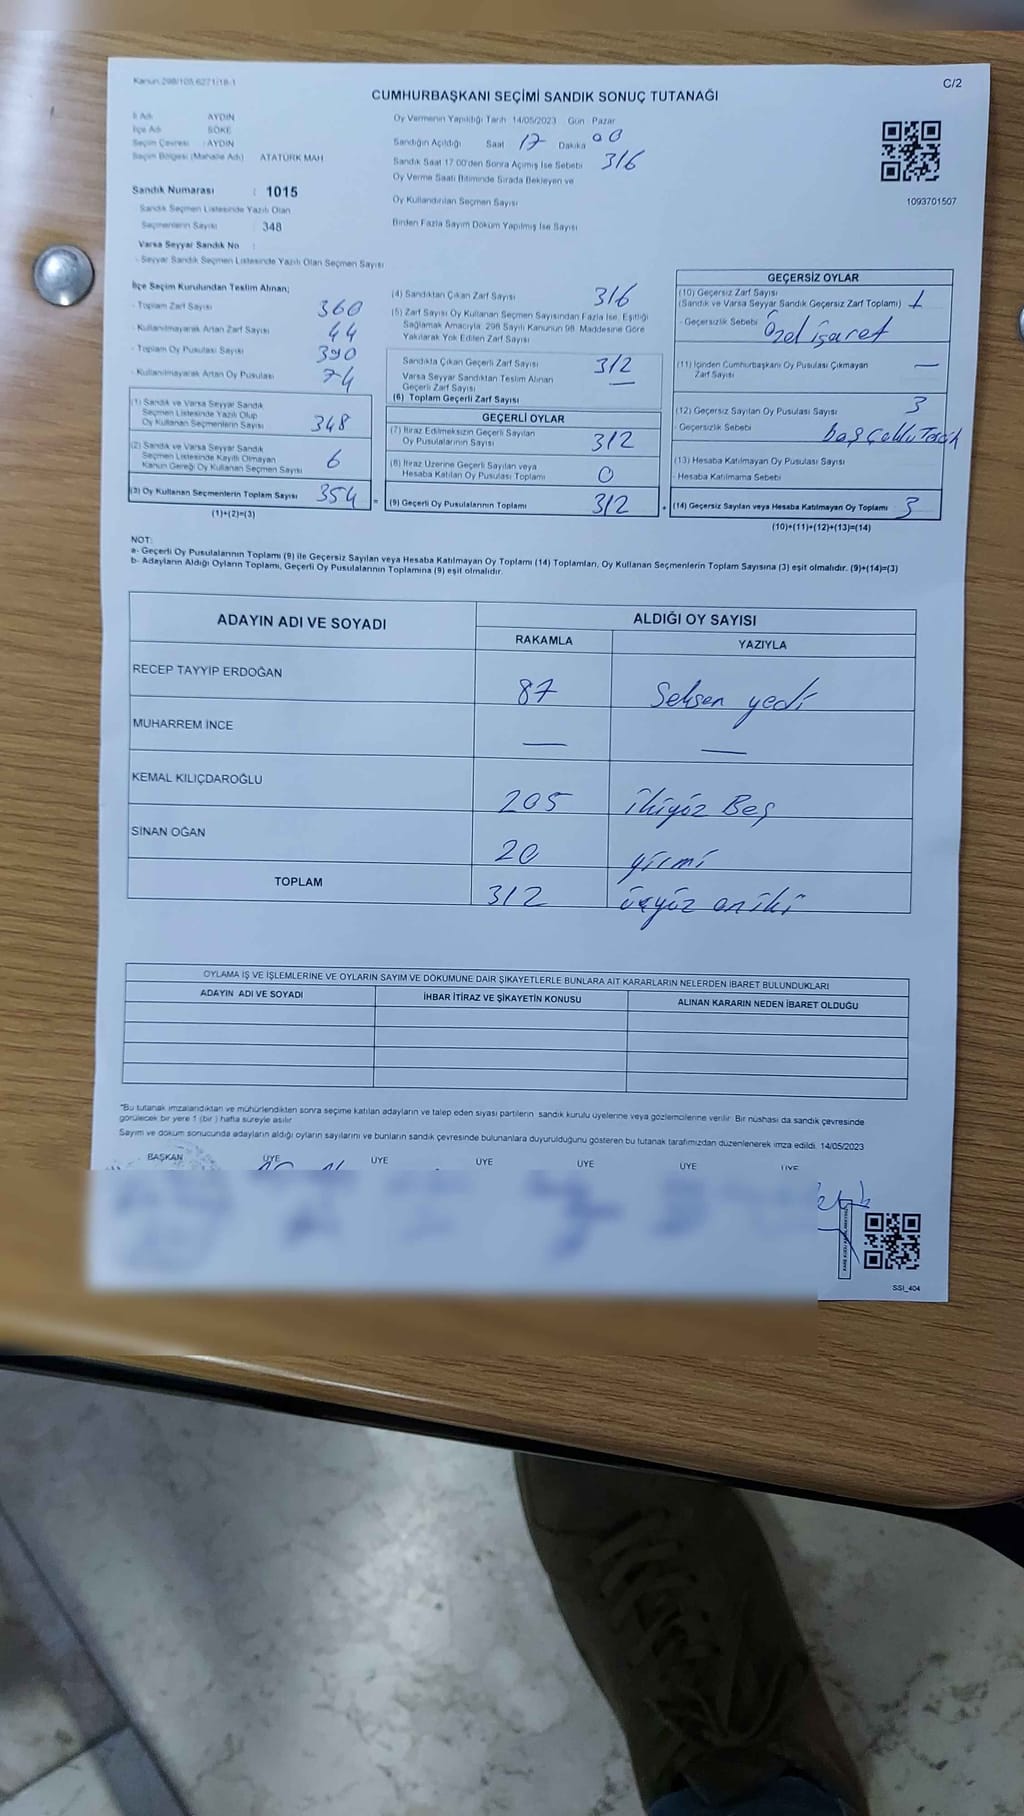 Kanun:298/105,6271/18-1
C/2
CUMHURBAŞKANI SEÇİMİ SANDIK SONUÇ TUTANAĞI
İl Adı AYDIN
İlçe Adı SÖKE
Seçim Çevresi : AYDIN
Seçim Bölgesi (Mahalle Adı) ATATÜRK MAH
Sandık Numarası : 1015
Sandık Seçmen Listesinde Yazılı Olan
Seçmenlerin Sayısı : 348
Varsa Seyyar Sandık No :
- Seyyar Sandık Seçmen Listesinde Yazılı Olan Seçmen Sayısı
Oy Vermenin Yapıldığı Tarih 14/05/2023 Gün : Pazar
Sandığın Açıldığı Saat 17 Dakika 00
Sandık Saat 17.00'den Sonra Açımış İse Sebebi 316
Oy Verme Saati Bitiminde Sırada Bekleyen ve
Oy Kullandırılan Seçmen Sayısı
Birden Fazla Sayım Döküm Yapılmış İse Sayısı
1093701507
İlçe Seçim Kurulundan Teslim Alınan;
- Toplam Zarf Sayısı 360
- Kullanılmayarak Artan Zarf Sayısı 44
- Toplam Oy Pusulası Sayısı 390
- Kullanılmayarak Artan Oy Pusulası 74
(1) Sandık ve Varsa Seyyar Sandık
Seçmen Listesinde Yazılı Olup
Oy Kullanan Seçmenlerin Sayısı 348
(2) Sandık ve Varsa Seyyar Sandık
Seçmen Listesinde Kayıtlı Olmayan
Kanun Gereği Oy Kullanan Seçmen Sayısı 6
(3) Oy Kullanan Seçmenlerin Toplam Sayısı 354 =
(1)+(2)=(3)
(4) Sandıktan Çıkan Zarf Sayısı 316
(5) Zarf Sayısı Oy Kullanan Seçmen Sayısından Fazla İse, Eşitliği
Sağlamak Amacıyla 298 Sayılı Kanunun 98. Maddesine Göre
Yakılarak Yok Edilen Zarf Sayısı
Sandıkta Çıkan Geçerli Zarf Sayısı 312
Varsa Seyyar Sandıktan Teslim Alınan
Geçerli Zarf Sayısı —
(6) Toplam Geçerli Zarf Sayısı
GEÇERLİ OYLAR
(7) İtiraz Edilmeksizin Geçerli Sayılan
Oy Pusulalarının Sayısı 312
(8) İtiraz Üzerine Geçerli Sayılan veya
Hesaba Katılan Oy Pusulası Toplamı 0
(9) Geçerli Oy Pusulalarının Toplamı 312 +
GEÇERSİZ OYLAR
(10) Geçersiz Zarf Sayısı
(Sandık ve Varsa Seyyar Sandık Geçersiz Zarf Toplamı) 1
- Geçersizlik Sebebi Özel işaret
(11) İçinden Cumhurbaşkanı Oy Pusulası Çıkmayan
Zarf Sayısı —
(12) Geçersiz Sayılan Oy Pusulası Sayısı 3
- Geçersizlik Sebebi
(13) Hesaba Katılmayan Oy Pusulası Sayısı
- Hesaba Katılmama Sebebi
(14) Geçersiz Sayılan veya Hesaba Katılmayan Oy Toplamı 3
(10)+(11)+(12)+(13)=(14)
NOT:
a- Geçerli Oy Pusulalarının Toplamı (9) ile Geçersiz Sayılan veya Hesaba Katılmayan Oy Toplamı (14) Toplamları, Oy Kullanan Seçmenlerin Toplam Sayısına (3) eşit olmalıdır. (9)+(14)=(3)
b- Adayların Aldığı Oyların Toplamı, Geçerli Oy Pusulalarının Toplamına (9) eşit olmalıdır.
ADAYIN ADI VE SOYADI ALDIĞI OY SAYISI
RAKAMLA YAZIYLA
RECEP TAYYİP ERDOĞAN 87 Seksen yedi
MUHARREM İNCE — —
KEMAL KILIÇDAROĞLU 205 ikiyüz Beş
SİNAN OĞAN 20 yirmi
TOPLAM 312 üçyüz oniki
OYLAMA İŞ VE İŞLEMLERİNE VE OYLARIN SAYIM VE DÖKÜMÜNE DAİR ŞİKAYETLERLE BUNLARA AİT KARARLARIN NELERDEN İBARET BULUNDUKLARI
ADAYIN ADI VE SOYADI İHBAR İTİRAZ VE ŞİKAYETİN KONUSU ALINAN KARARIN NEDEN İBARET OLDUĞU
*Bu tutanak imzalandıktan ve mühürlendikten sonra seçime katılan adayların ve talep eden siyasi partilerin sandık kurulu üyelerine veya gözlemcilerine verilir. Bir nüshası da sandık çevresinde
görülecek bir yere 1 (bir ) hafta süreyle asılır
Sayım ve döküm sonucunda adayların aldığı oyların sayılarını ve bunların sandık çevresinde bulunanlara duyurulduğunu gösteren bu tutanak tarafımızdan düzenlenerek imza edildi. 14/05/2023
BAŞKAN ÜYE ÜYE ÜYE ÜYE ÜYE ÜYE
SSI_404